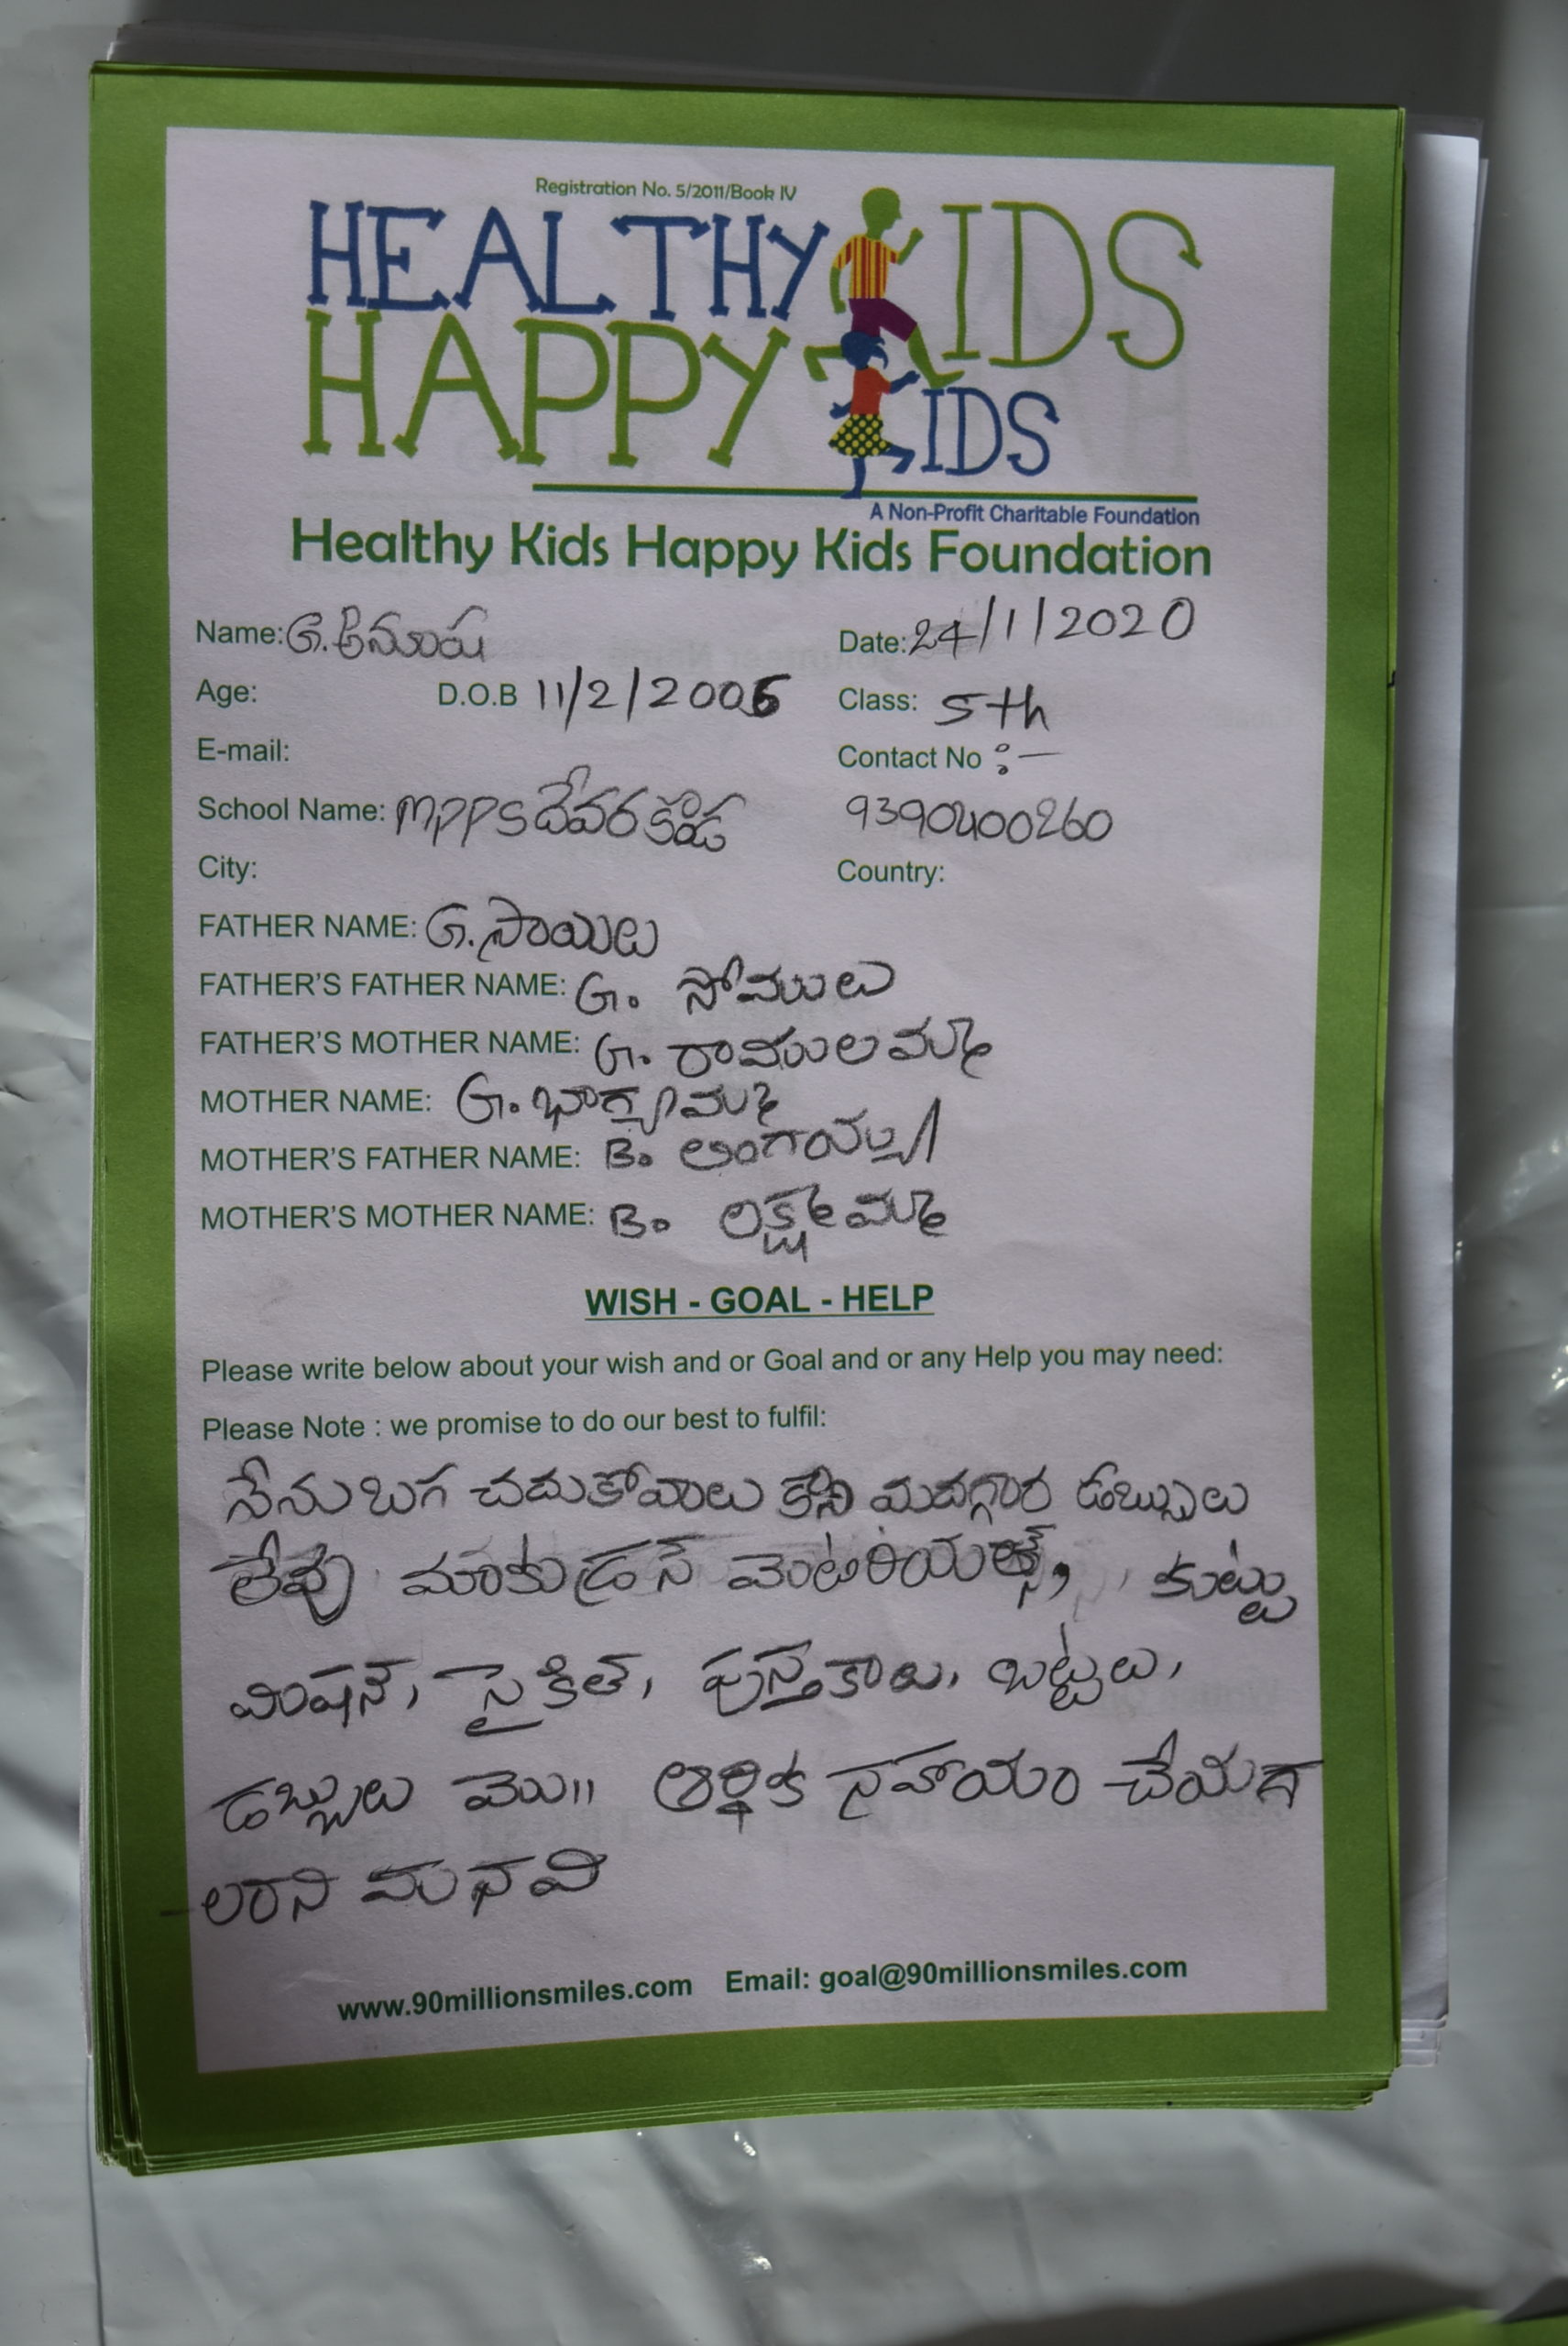 Registration No. 5/2011/Book IV
HEALTHY KIDS
HAPPY KIDS
A Non-Profit Charitable Foundation
Healthy Kids Happy Kids Foundation
Name: G. Date: 24/1/2020
Age: D.O.B 11/2/2006 Class: 5th
E-mail: Contact No :-
School Name: mpps దేవరకొండ 9390400260
City: Country:
FATHER NAME: G. సాయిలు
FATHER'S FATHER NAME: G. సోములు
FATHER'S MOTHER NAME: G. రాములమ్మ
MOTHER NAME: G. భాగ్యమ్మ
MOTHER'S FATHER NAME: B. లింగయ్య
MOTHER'S MOTHER NAME: B. లక్ష్మమ్మ
WISH - GOAL - HELP
Please write below about your wish and or Goal and or any Help you may need:
Please Note : we promise to do our best to fulfil:
నేను బగ చదుకోవాలు కని మదగ్గార డబ్బులు
లేవు మాకు డ్రస్ మెటిరియల్స్, కుట్టు
మిషన్, సైకిల్, పుస్తకాలు, బట్టలు,
డబ్బులు మొ॥ ఆర్థిక సహాయం చేయగ
లరని మనవి
www.90millionsmiles.com Email: goal@90millionsmiles.com